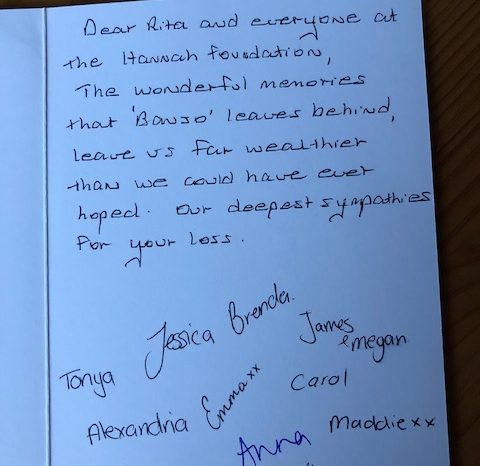 Dear Rita and everyone at
the Hannah foundation,
The wonderful memories
that 'Banjo' leaves behind,
leave us far wealthier
than we could have ever
hoped. Our deepest sympathies
for your loss.
Jessica Brenda.
James
& megan
Tonya
Emma xx
Carol
Alexandria
Maddie xx
Anna